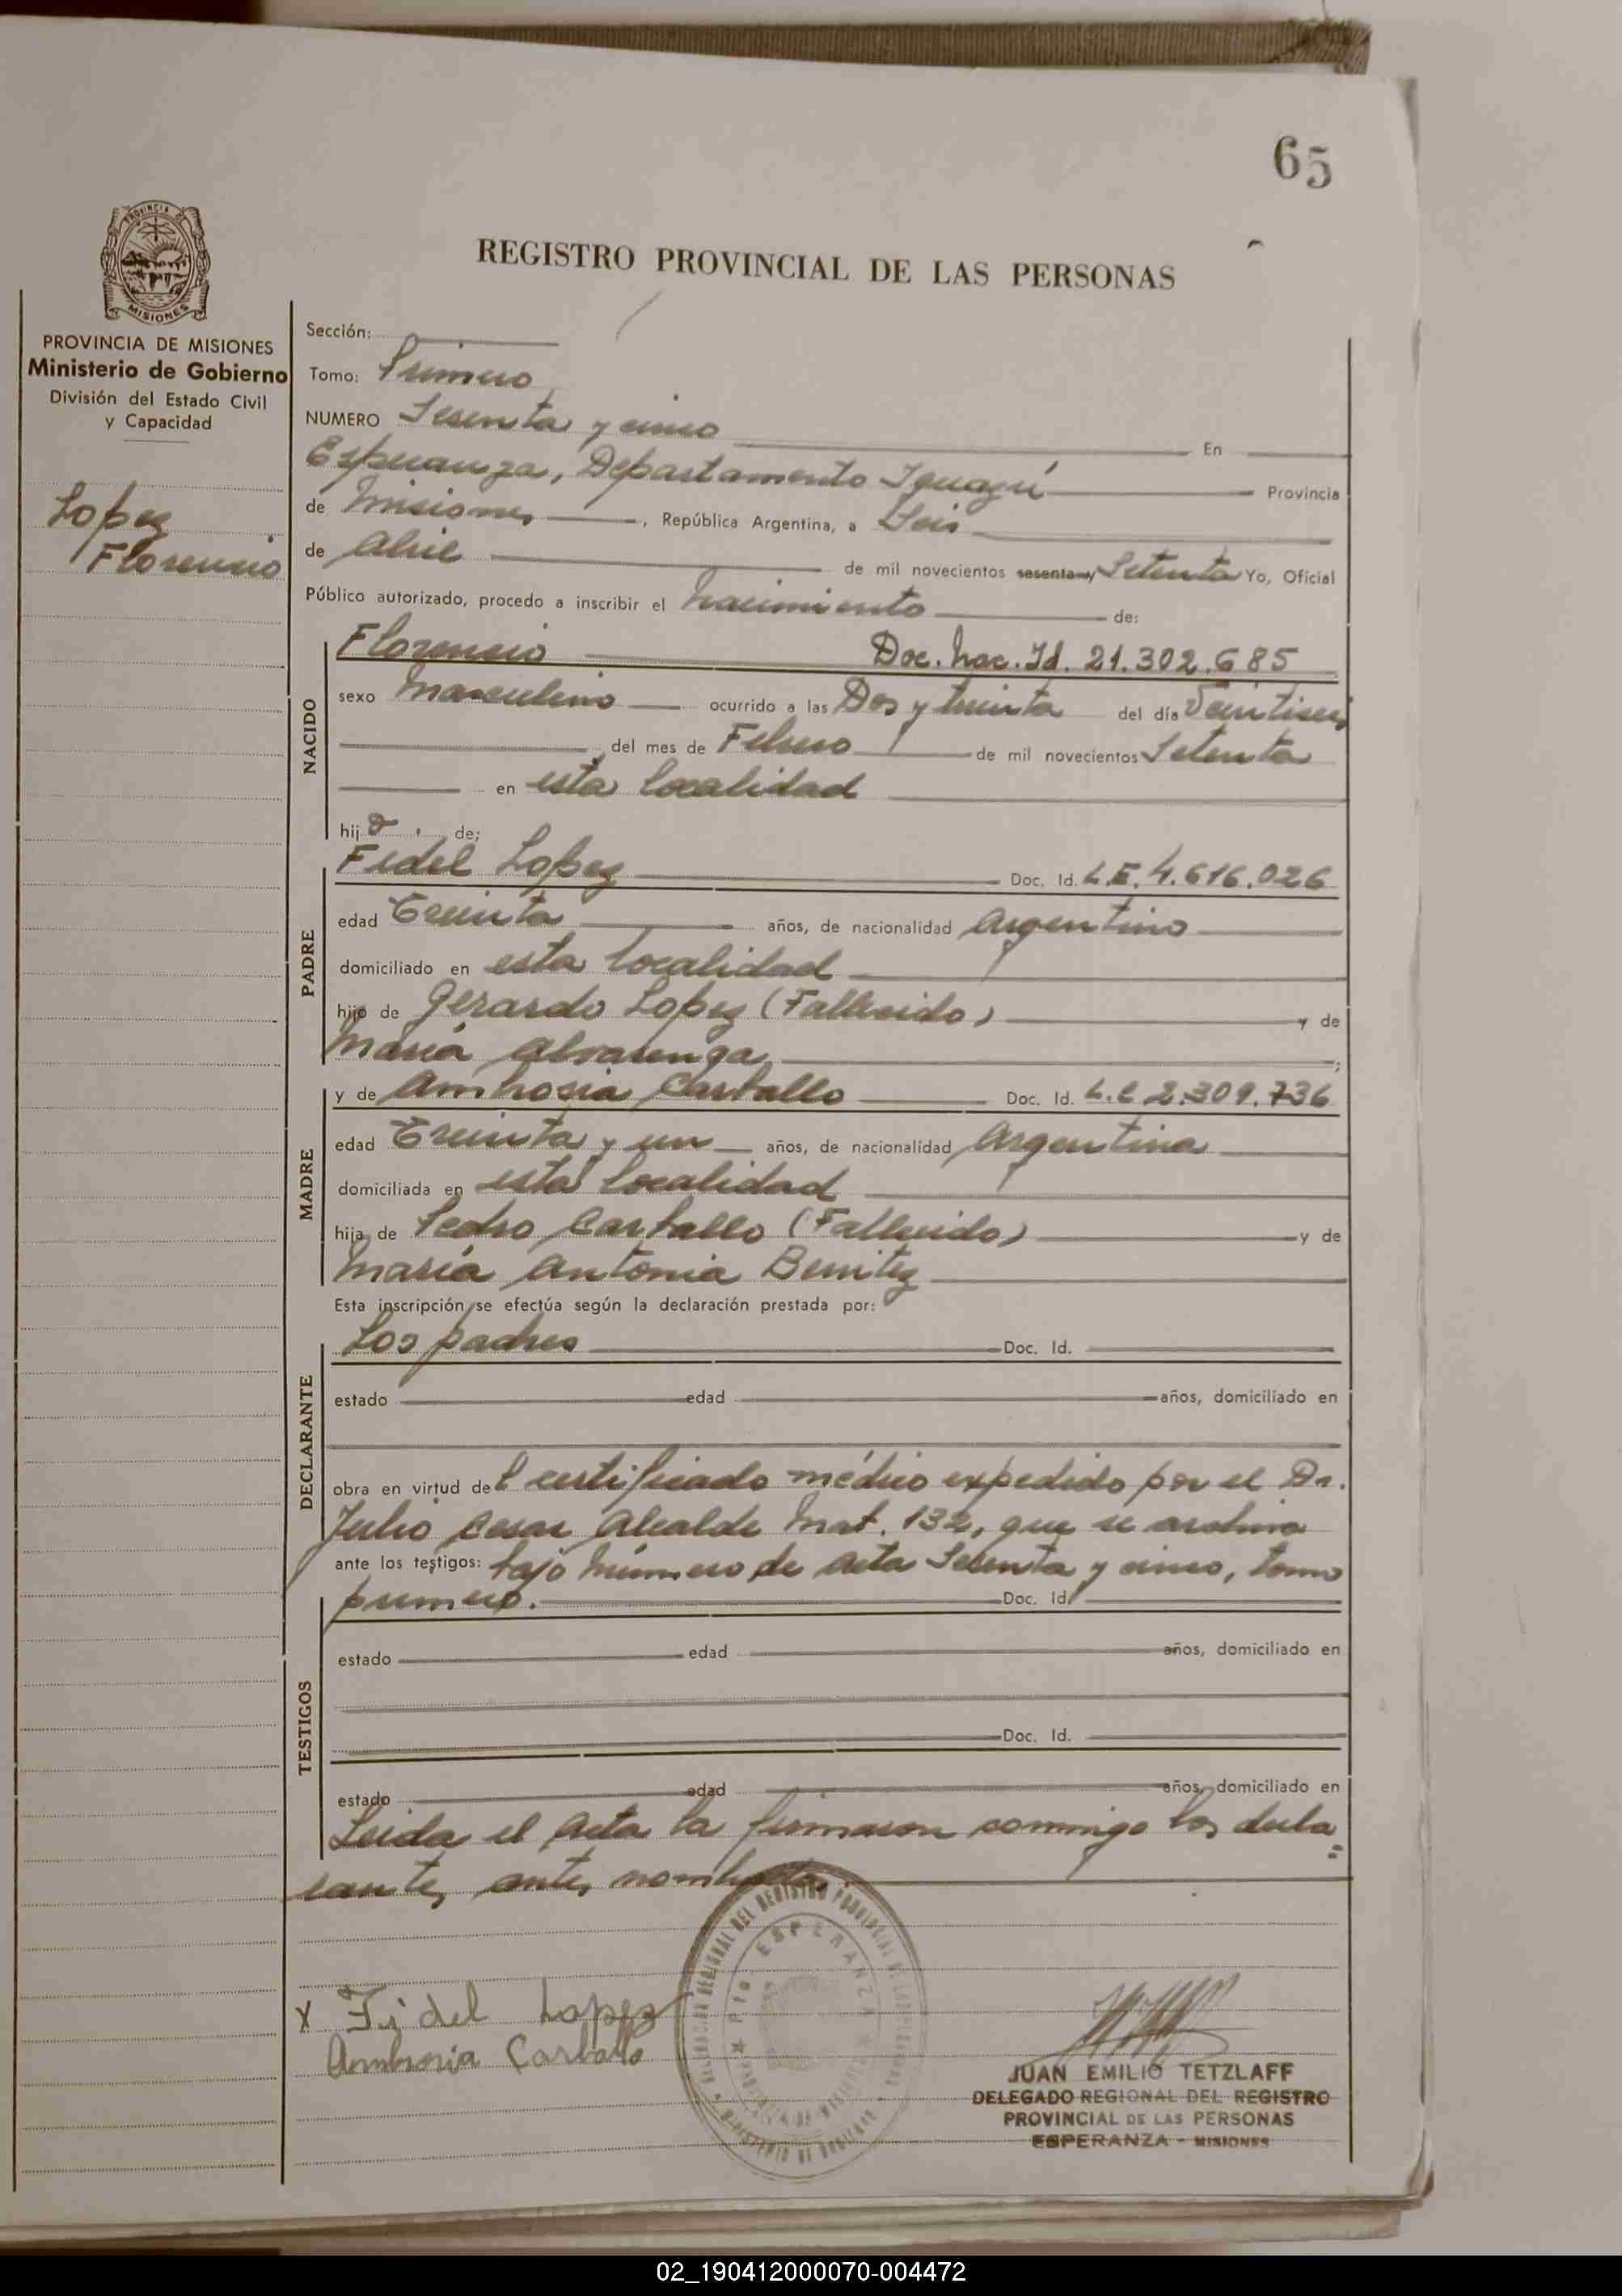 65
REGISTRO PROVINCIAL DE LAS PERSONAS
PROVINCIA DE MISIONES
PROVINCIA DE MISIONES
Ministerio de Gobierno
División del Estado Civil
y Capacidad
Lopez
Florencio
Sección:
Tomo: Primero
NUMERO Sesenta y cinco En
Esperanza, Departamento Iguazú Provincia
de Misiones, República Argentina, a Seis
de Abril de mil novecientos sesenta y Setenta Yo, Oficial
Público autorizado, procedo a inscribir el Nacimiento de:
NACIDO
Florencio Doc. Nac. Id. 21.302.685
sexo Masculino ocurrido a las Dos y treinta del día Veintiseis
del mes de Febrero de mil novecientos Setenta
en esta localidad
hijo de;
PADRE
Fidel Lopez Doc. Id. L.E. 4.616.026
edad Treinta años, de nacionalidad Argentino
domiciliado en esta localidad
hijo de Gerardo Lopez (Fallecido) y de
María Alvarenga;
MADRE
y de Ambrosia Carballo Doc. Id. L.C. 2.309.736
edad Treinta y un años, de nacionalidad Argentina
domiciliada en esta localidad
hija de Pedro Carballo (Fallecido) y de
María Antonia Benitez
Esta inscripción se efectúa según la declaración prestada por:
DECLARANTE
Los padres Doc. Id.
estado edad años, domiciliado en
obra en virtud del certificado médico expedido por el Dr.
Julio Cesar Alcalde Mat. 132, que se archiva
ante los testigos: bajo número de acta Sesenta y cinco, tomo
primero. Doc. Id.
TESTIGOS
estado edad años, domiciliado en
Doc. Id.
estado edad años, domiciliado en
Leida el Acta la firmaron conmigo los decla=
rantes antes nombrados.
DELEGACION REGIONAL DEL REGISTRO PROVINCIAL DE LAS PERSONAS
PTO ESPERANZA
MINISTERIO DE GOBIERNO
X Fidel Lopez
Ambrosia Carballo
JUAN EMILIO TETZLAFF
DELEGADO REGIONAL DEL REGISTRO
PROVINCIAL DE LAS PERSONAS
ESPERANZA - MISIONES
02_190412000070-004472